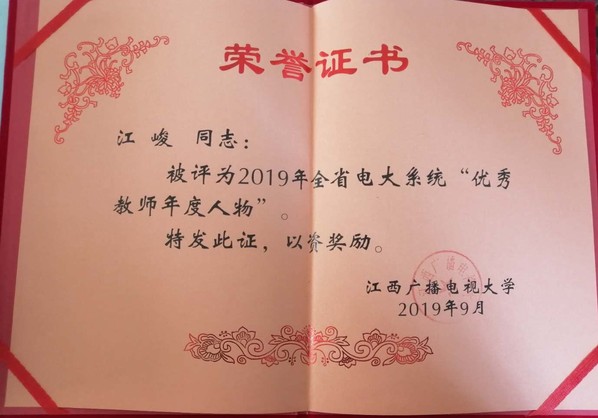 荣誉证书
江峻 同志：
被评为2019年全省电大系统“优秀
教师年度人物”。
特发此证，以资奖励。
江西广播电视大学
2019年9月